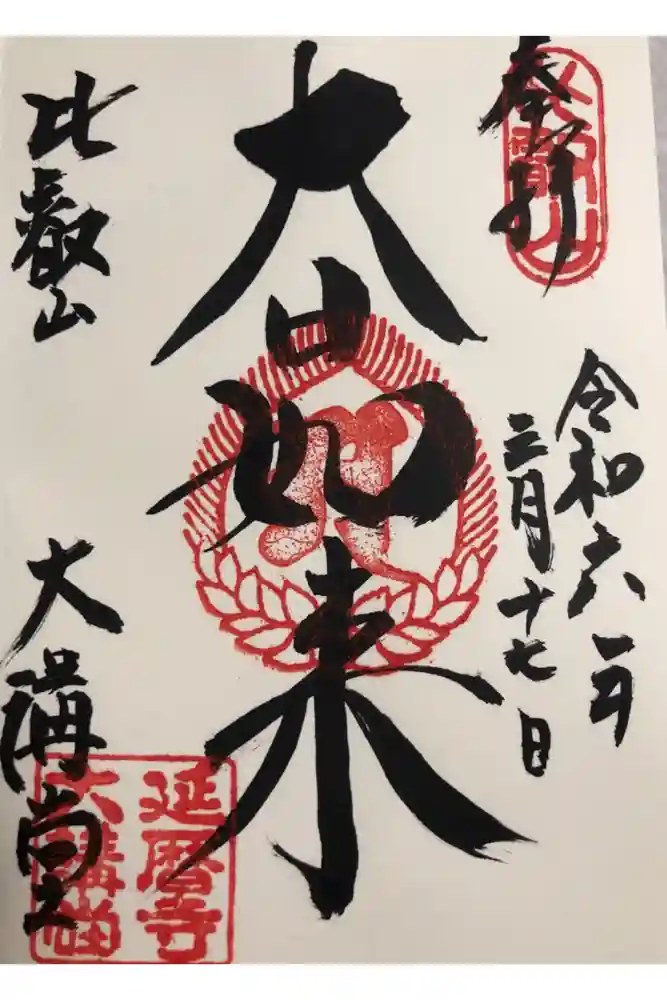 奉拝
令和六年
三月十七日
大日如来
比叡山
大講堂
延暦寺
大講堂